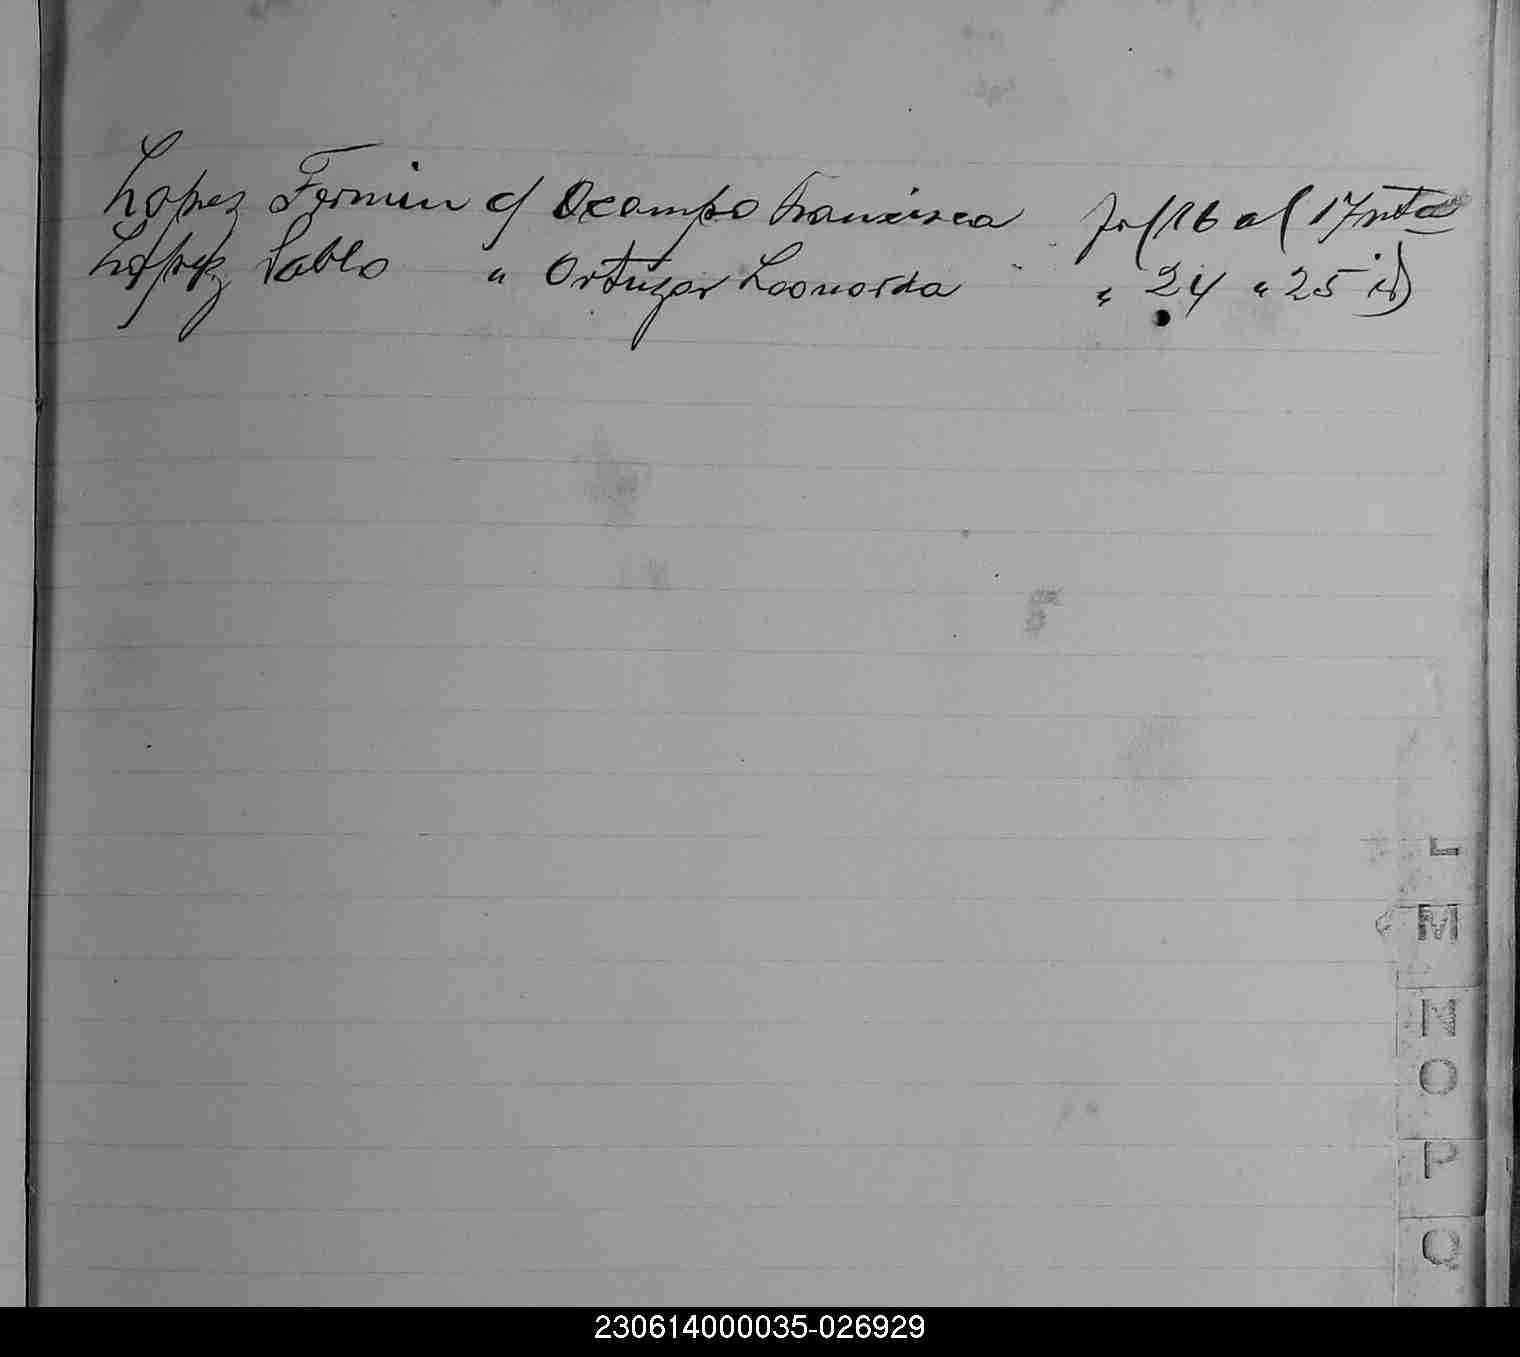 Lopez Fermin c/ Ocampo Francisca fol 16 al 17 vta
Lopez Pablo " Ortuzar Leonarda " 24 " 25 id
L
M
N
O
P
Q
230614000035-026929